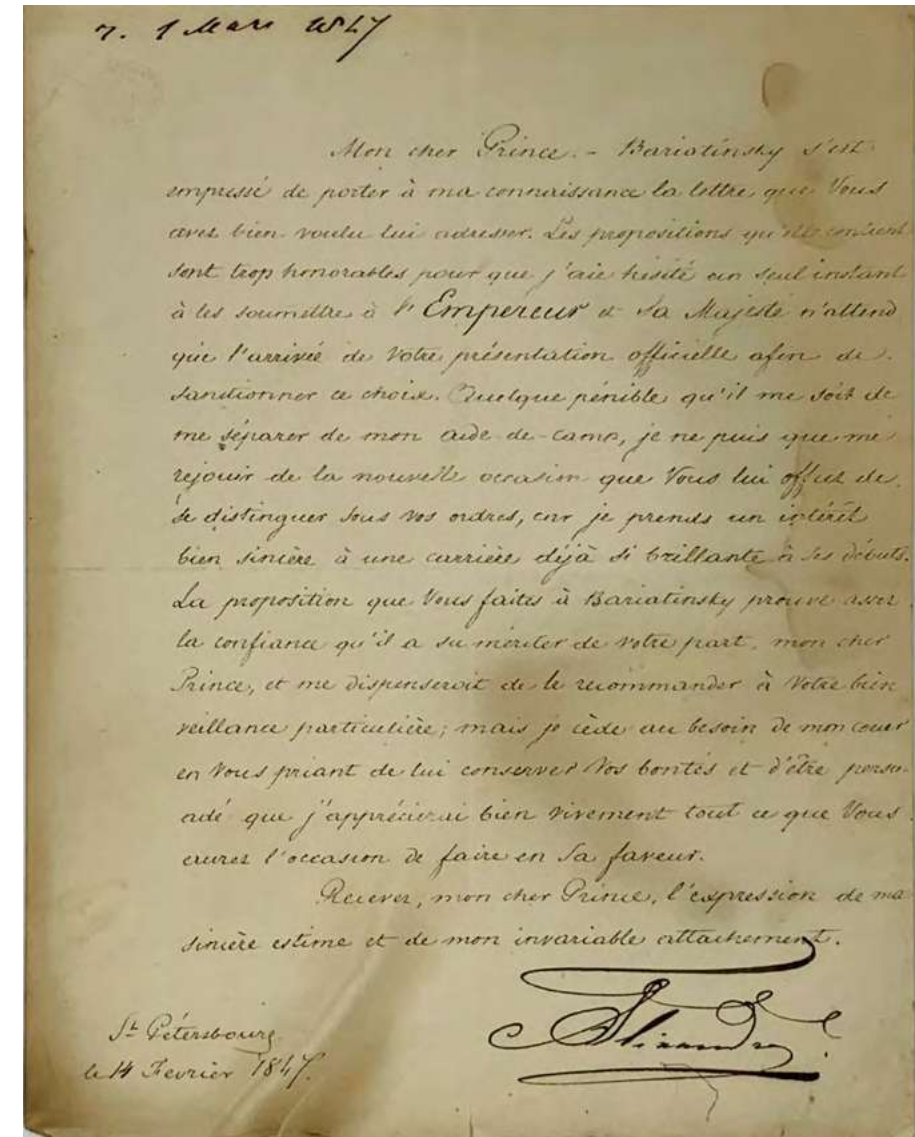 r. 1 Mars 1847
Mon cher Prince. – Bariatinsky s'est
empressé de porter à ma connaissance la lettre que Vous
avez bien voulu lui adresser. Les propositions qu'elle contient
sont trop honorables pour que j'aie hésité un seul instant
à les soumettre à l'Empereur et Sa Majesté n'attend
que l'arrivée de Votre présentation officielle afin de
sanctionner ce choix. Quelque pénible qu'il me soit de
me séparer de mon aide-de-camp, je ne puis que me
réjouir de la nouvelle occasion que Vous lui offrez de
se distinguer sous vos ordres, car je prends un intérêt
bien sincère à une carrière déjà si brillante à ses débuts.
La proposition que Vous faites à Bariatinsky prouve assez
la confiance qu'il a su mériter de votre part, mon cher
Prince, et me dispenserait de le recommander à Votre bien
veillance particulière; mais je cède au besoin de mon cœur
en Vous priant de lui conserver Vos bontés et d'être persu
adé que j'apprécierai bien vivement tout ce que Vous
aurez l'occasion de faire en Sa faveur.
Recevez, mon cher Prince, l'expression de ma
sincère estime et de mon invariable attachement.
Alexandre
St Pétersbourg
le 14 Fevrier 1847.